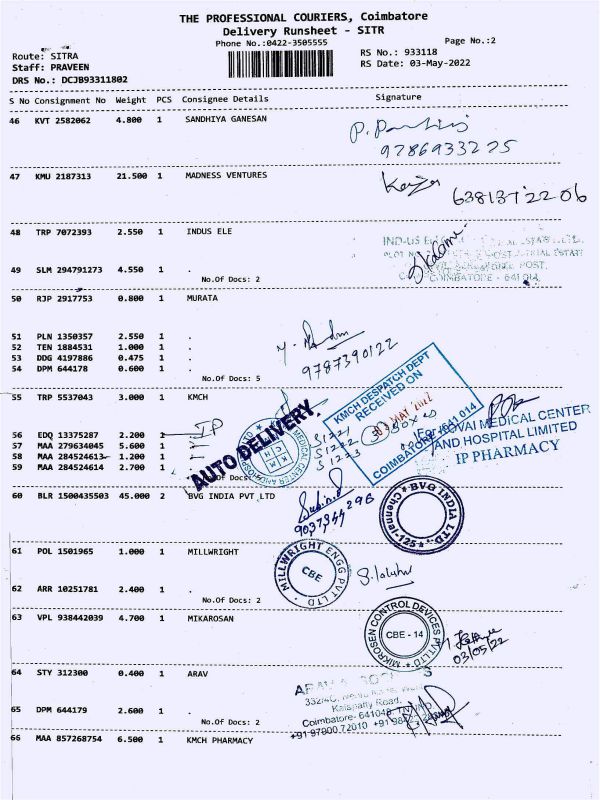 THE PROFESSIONAL COURIERS, Coimbatore
Delivery Runsheet - SITR
Phone No.:0422-3505555
Page No.:2
Route: SITRA
RS No.: 933118
Staff: PRAVEEN
RS Date: 03-May-2022
DRS No.: DCJB93311802
S No Consignment No Weight PCS Consignee Details Signature
46 KVT 2582062 4.800 1 SANDHIYA GANESAN
9786933275
47 KMU 2187313 21.500 1 MADNESS VENTURES
48 TRP 7072393 2.550 1 INDUS ELE
49 SLM 294791273 4.550 1 .
No.Of Docs: 2
COIMBATORE - 641 014.
50 RJP 2917753 0.800 1 MURATA
51 PLN 1350357 2.550 1 .
52 TEN 1884531 1.000 1 .
53 DDG 4197886 0.475 1 .
54 DPM 644178 0.600 1 .
No.Of Docs: 5
9787390122
55 TRP 5537043 3.000 1 KMCH
KMCH DESPATCH DEPT
RECEIVED ON
MAY 2022
COIMBATORE-641 014
56 EDQ 13375287 2.200 1
IP
57 MAA 279634045 5.600 1
58 MAA 284524613 1.200 1
59 MAA 284524614 2.700 1
AUTO DELIVERY.
MEDICAL CENTER AND HOSPITAL
KMCH
S1221
S1222
S1223
For KOVAI MEDICAL CENTER
AND HOSPITAL LIMITED
IP PHARMACY
60 BLR 1500435503 45.000 2 BVG INDIA PVT LTD
BVG INDIA LTD
Chennai-125
61 POL 1501965 1.000 1 MILLWRIGHT
MILLWRIGHT ENGG PVT LTD
CBE
62 ARR 10251781 2.400 1 .
No.Of Docs: 2
63 VPL 938442039 4.700 1 MIKAROSAN
MIKROSEN CONTROL DEVICES PVT LTD
CBE - 14
03/05/22
64 STY 312300 0.400 1 ARAV
Kalapatty Road,
Coimbatore- 641048
+91 97900 72010
65 DPM 644179 2.600 1 .
No.Of Docs: 2
66 MAA 857268754 6.500 1 KMCH PHARMACY